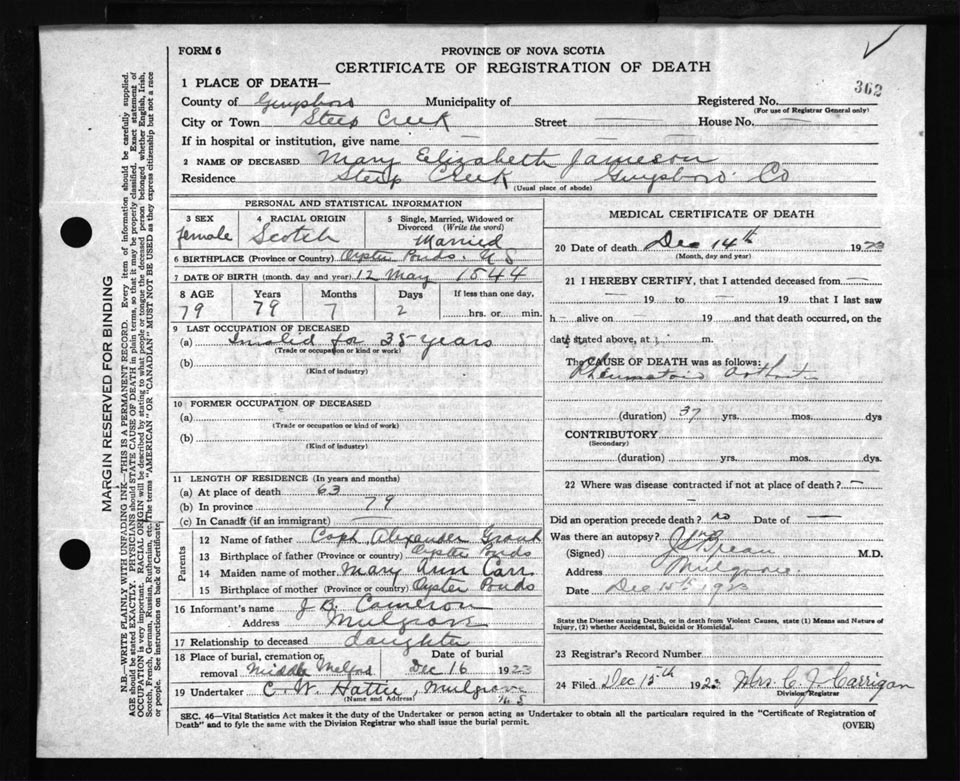 FORM 6
PROVINCE OF NOVA SCOTIA
CERTIFICATE OF REGISTRATION OF DEATH
362
1 PLACE OF DEATH—
County of Guysboro Municipality of Registered No.
(For use of Registrar General only)
City or Town Steep Creek Street — House No. —
If in hospital or institution, give name — — —
2 NAME OF DECEASED Mary Elizabeth Jameson
Residence Steep Creek Guysboro Co
(Usual place of abode)
PERSONAL AND STATISTICAL INFORMATION
3 SEX 4 RACIAL ORIGIN 5 Single, Married, Widowed or Divorced (Write the word)
female Scotch Married
6 BIRTHPLACE (Province or Country) Oyster Ponds. N S
7 DATE OF BIRTH (month, day and year) 12 May 1844
8 AGE Years Months Days If less than one day,
79 79 7 2 hrs. or min.
9 LAST OCCUPATION OF DECEASED
(a) Invalid for 35 years
(Trade or occupation or kind or work)
(b)
(Kind of industry)
10 FORMER OCCUPATION OF DECEASED
(a)
(Trade or occupation or kind of work)
(b)
(Kind of industry)
11 LENGTH OF RESIDENCE (In years and months)
(a) At place of death 63
(b) In province 79
(c) In Canada (if an immigrant) —
Parents
12 Name of father Capt. Alexander Grant
13 Birthplace of father (Province or country) Oyster Ponds
14 Maiden name of mother Mary Ann Carr
15 Birthplace of mother (Province or country) Oyster Ponds
16 Informant's name J B. Cameron
Address Mulgrave
17 Relationship to deceased daughter
18 Place of burial, cremation or removal Middle Melford Date of burial Dec 16 1923
19 Undertaker C. W. Hattie, Mulgrave N S
(Name and Address)
MEDICAL CERTIFICATE OF DEATH
20 Date of death Dec 14th 1923
(Month, day and year)
21 I HEREBY CERTIFY, that I attended deceased from —
— 19 to — 19 that I last saw
h — alive on — 19 and that death occurred, on the
date stated above, at m.
The CAUSE OF DEATH was as follows:
Rheumatoid
(duration) 37 yrs. mos. dys
CONTRIBUTORY
(Secondary)
(duration) yrs. mos. dys.
22 Where was disease contracted if not at place of death? —
—
Did an operation precede death? no Date of —
Was there an autopsy?
(Signed) M.D.
Address Mulgrave.
Date Dec 15th 1923
State the Disease causing Death, or in death from Violent Causes, state (1) Means and Nature of
Injury, (2) whether Accidental, Suicidal or Homicidal.
23 Registrar's Record Number
24 Filed Dec 15th 1923 Mrs. C. J. Carrigan
Division Registrar
SEC. 46—Vital Statistics Act makes it the duty of the Undertaker or person acting as Undertaker to obtain all the particulars required in the "Certificate of Registration of
Death" and to fyle the same with the Division Registrar who shall issue the burial permit.
(OVER)
MARGIN RESERVED FOR BINDING
N.B.—WRITE PLAINLY WITH UNFADING INK—THIS IS A PERMANENT RECORD. Every item of information should be carefully supplied.
AGE should be stated EXACTLY. PHYSICIANS should STATE CAUSE OF DEATH in plain terms, so that it may be properly classified. Exact statement of
OCCUPATION is very important. RACIAL ORIGIN will be described by stating to what people or tongue the deceased person belonged whether English, Irish,
Scotch, French, German, Russian, Ruthenian, etc. The terms "AMERICAN" OR "CANADIAN" MUST NOT BE USED as they express citizenship but not a race
or people. See instructions on back of Certificate